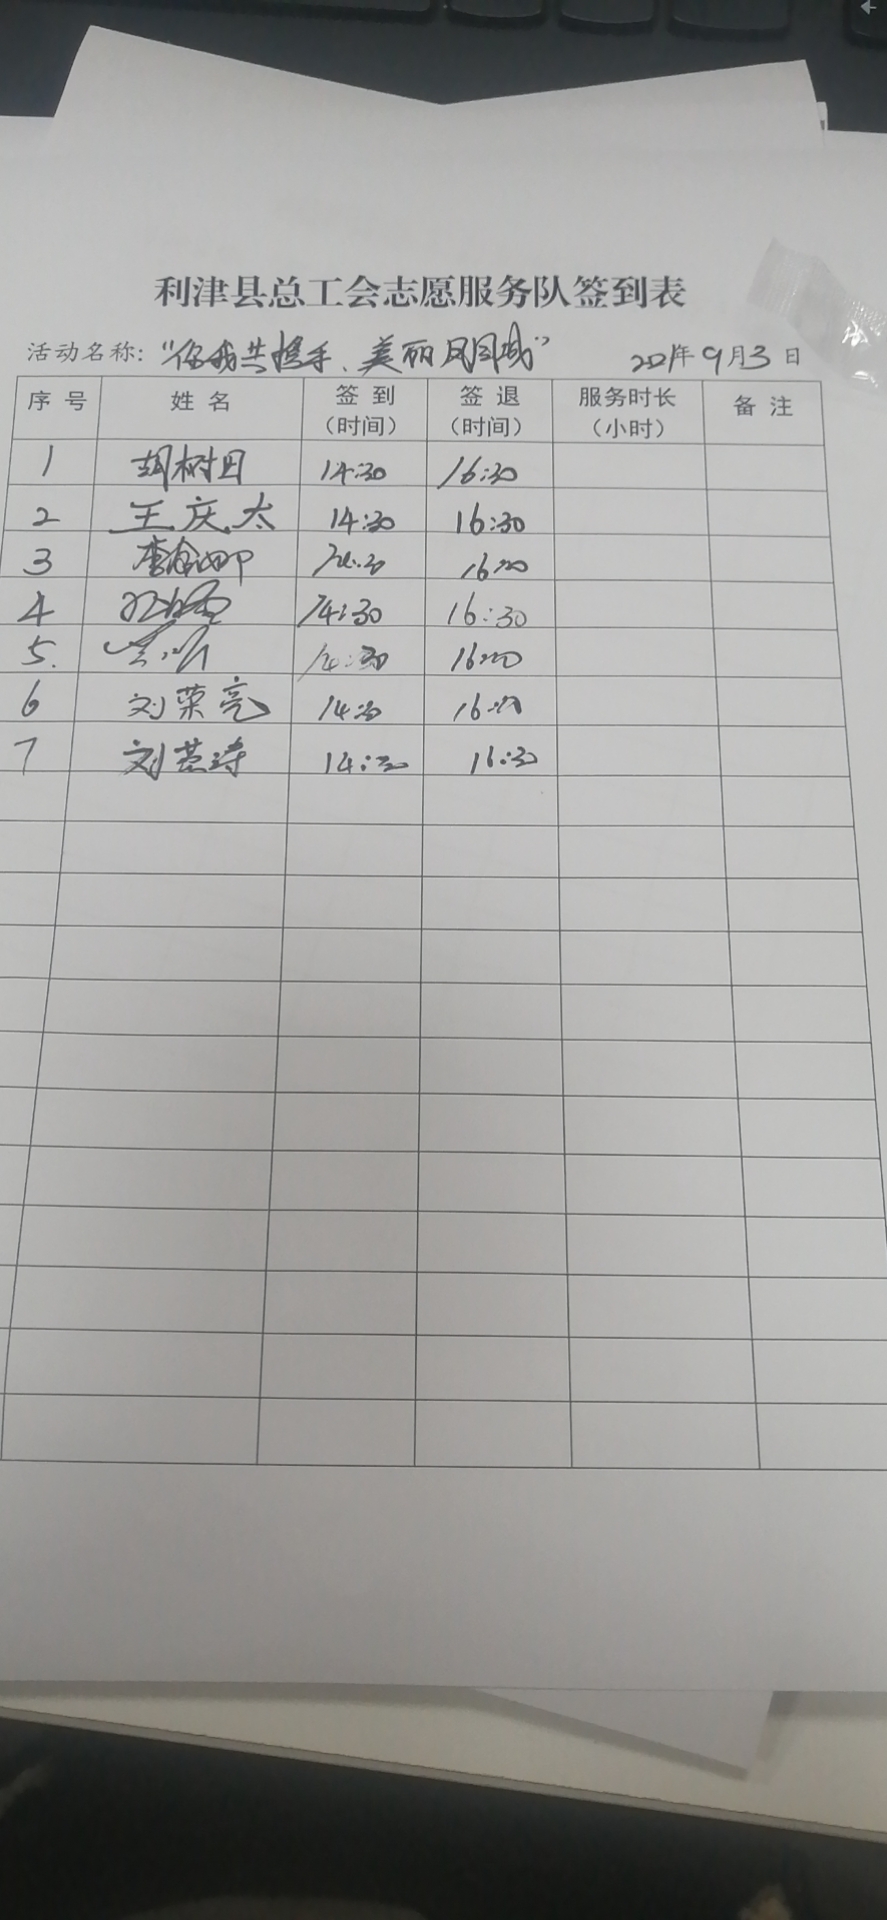 利津县总工会志愿服务队签到表
活动名称：“你我共携手、美丽凤凰城” 2021年9月3日
序号 姓名 签到（时间） 签退（时间） 服务时长（小时） 备注
1 胡树田 14:30 16:30
2 王庆太 14:30 16:30
3 李 14:30 16:30
4 14:30 16:30
5. 14:30 16:30
6 刘荣亮 14:30 16:30
7 刘 14:30 16:30